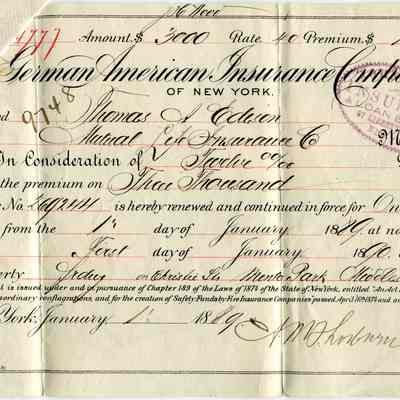 4777 Amount.$ 3000 Rate 40 Premium.$ 1
German American Insurance Comp
OF NEW YORK.
9748
Thomas A Edison
Mutual Insurance C
In Consideration of Twelve 00/100
the premium on Three Thousand
No. is hereby renewed and continued in force for On
from the 1st day of January 1889 at no
First day of January 1890
erty on Christie St Menlo Park
is issued under and in pursuance of Chapter 189 of the Laws of 1874 of the State of New York, entitled "An Act
aordinary conflagrations, and for the creation of Safety Funds by Fire Insurance Companies" passed April 1874 and
York, January 1 1889